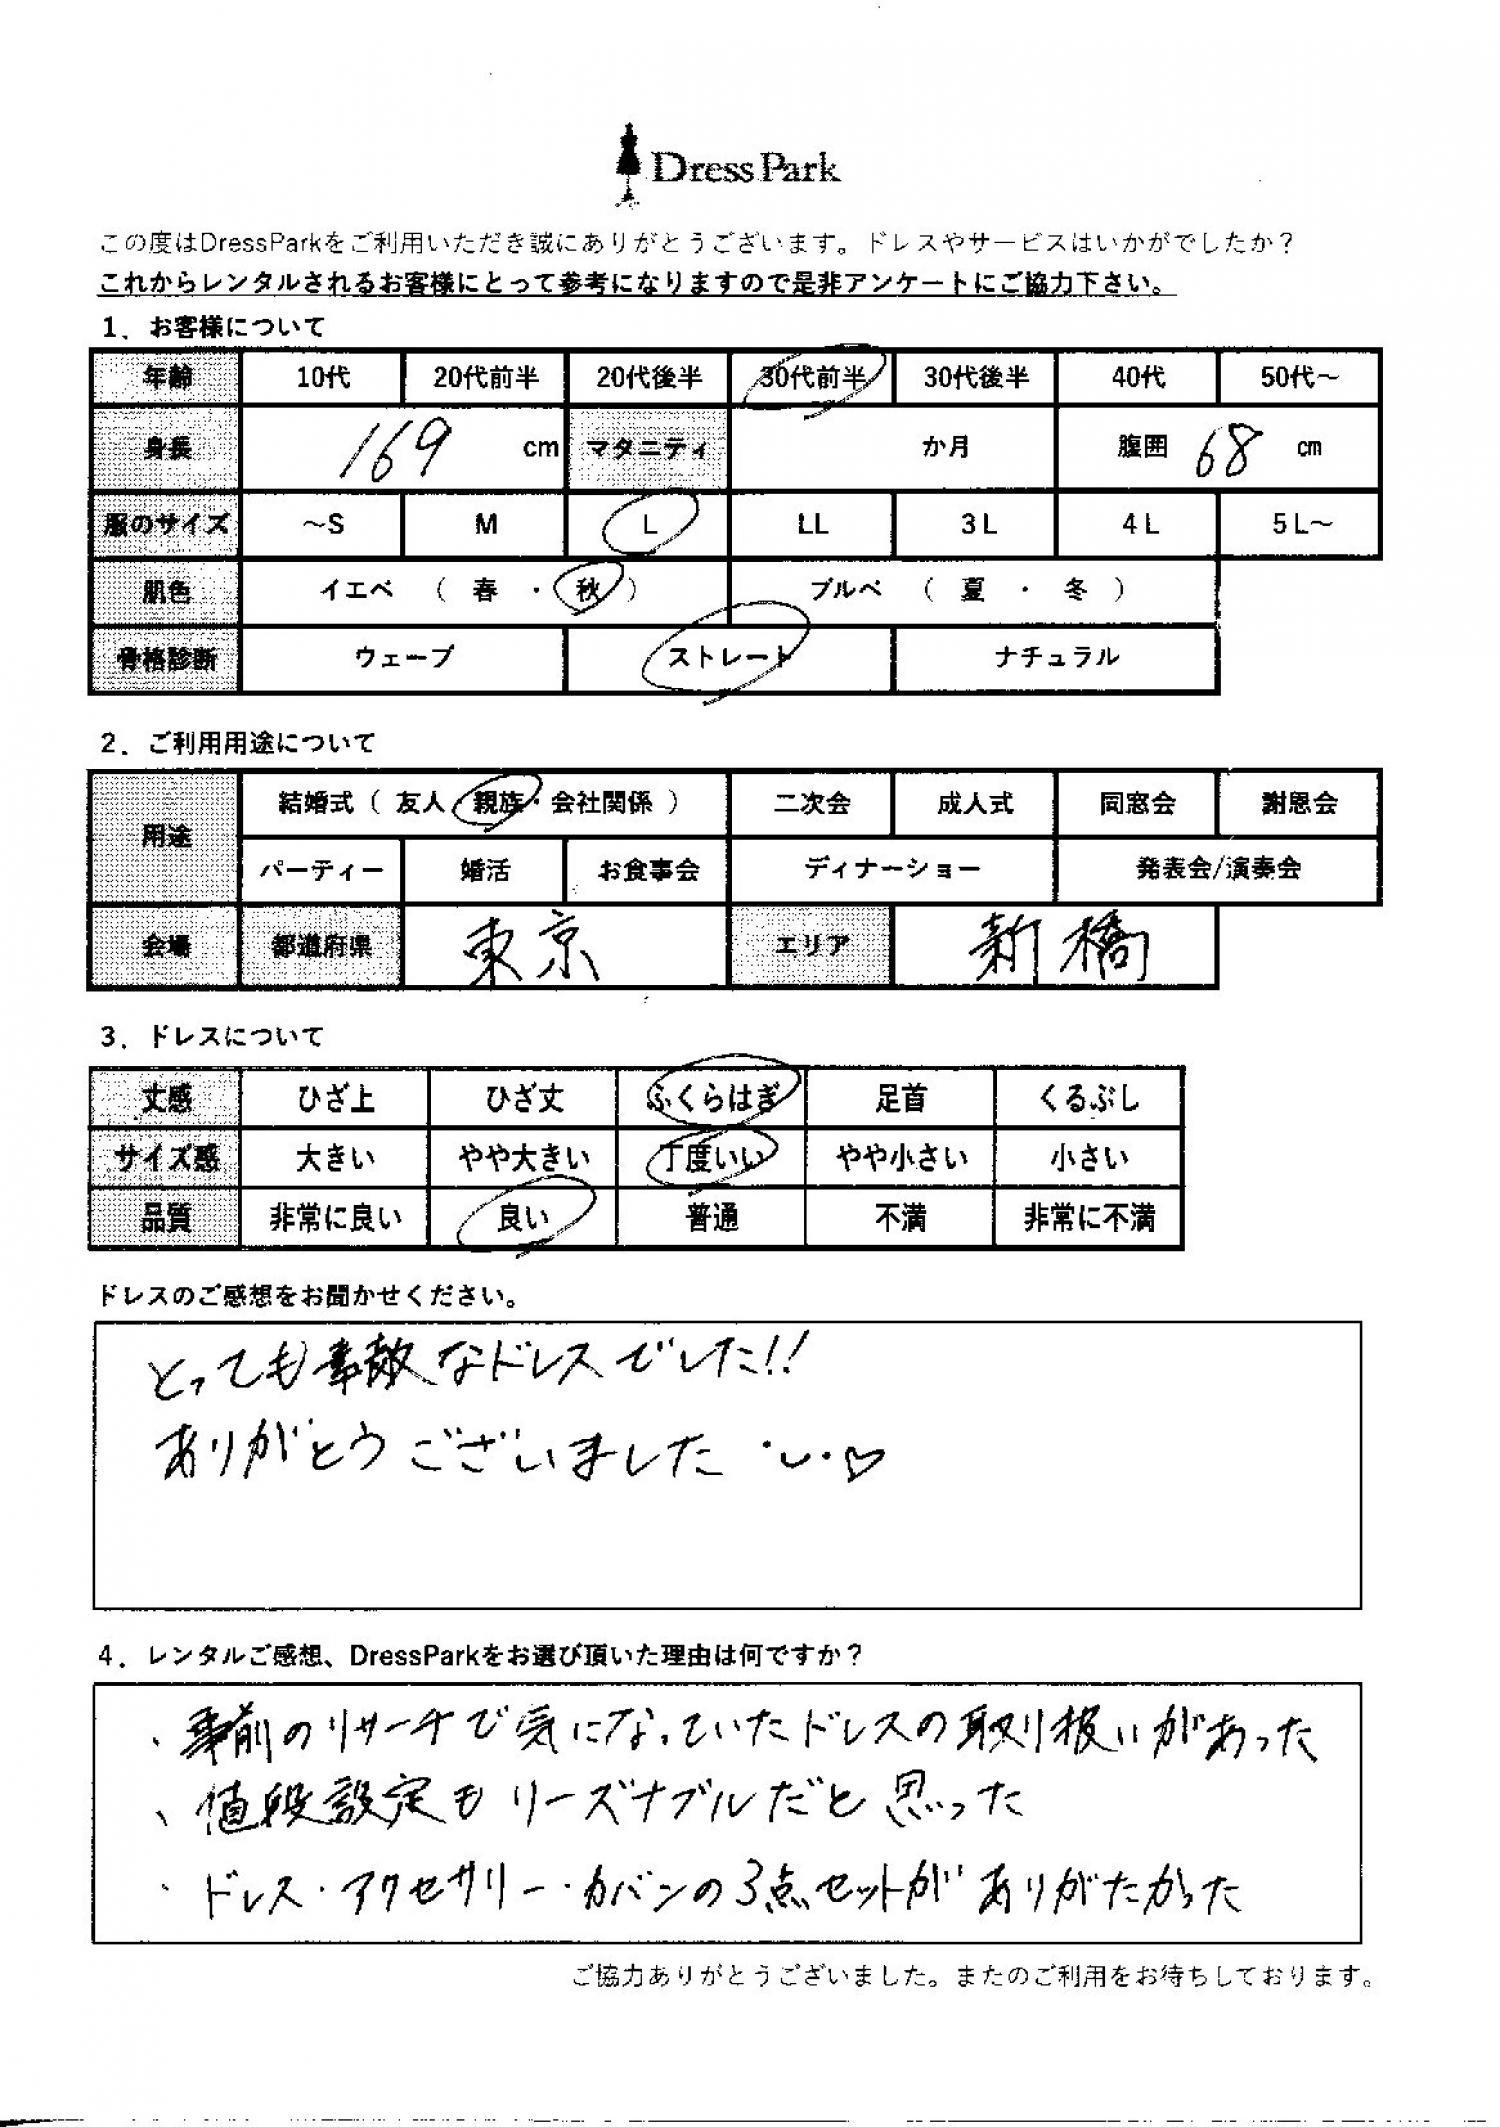 Dress Park
この度はDressParkをご利用いただき誠にありがとうございます。ドレスやサービスはいかがでしたか？
これからレンタルされるお客様にとって参考になりますので是非アンケートにご協力下さい。
1．お客様について
年齢 10代 20代前半 20代後半 30代前半 30代後半 40代 50代～
身長 169 cm マタニティ か月 腹囲 68 cm
服のサイズ ～S M L LL 3L 4L 5L～
肌色 イエベ （ 春 ・ 秋 ） ブルベ （ 夏 ・ 冬 ）
骨格診断 ウェーブ ストレート ナチュラル
2．ご利用用途について
用途 結婚式（ 友人・親族・会社関係 ） 二次会 成人式 同窓会 謝恩会
パーティー 婚活 お食事会 ディナーショー 発表会/演奏会
会場 都道府県 東京 エリア 新橋
3．ドレスについて
丈感 ひざ上 ひざ丈 ふくらはぎ 足首 くるぶし
サイズ感 大きい やや大きい 丁度いい やや小さい 小さい
品質 非常に良い 良い 普通 不満 非常に不満
ドレスのご感想をお聞かせください。
とっても素敵なドレスでした!!
ありがとうございました ･ᴗ･♡
4．レンタルご感想、DressParkをお選び頂いた理由は何ですか？
・事前のリサーチで気になっていたドレスの取り扱いがあった
、値段設定もリーズナブルだと思った
・ドレス・アクセサリー・カバンの3点セットがありがたかった
ご協力ありがとうございました。またのご利用をお待ちしております。